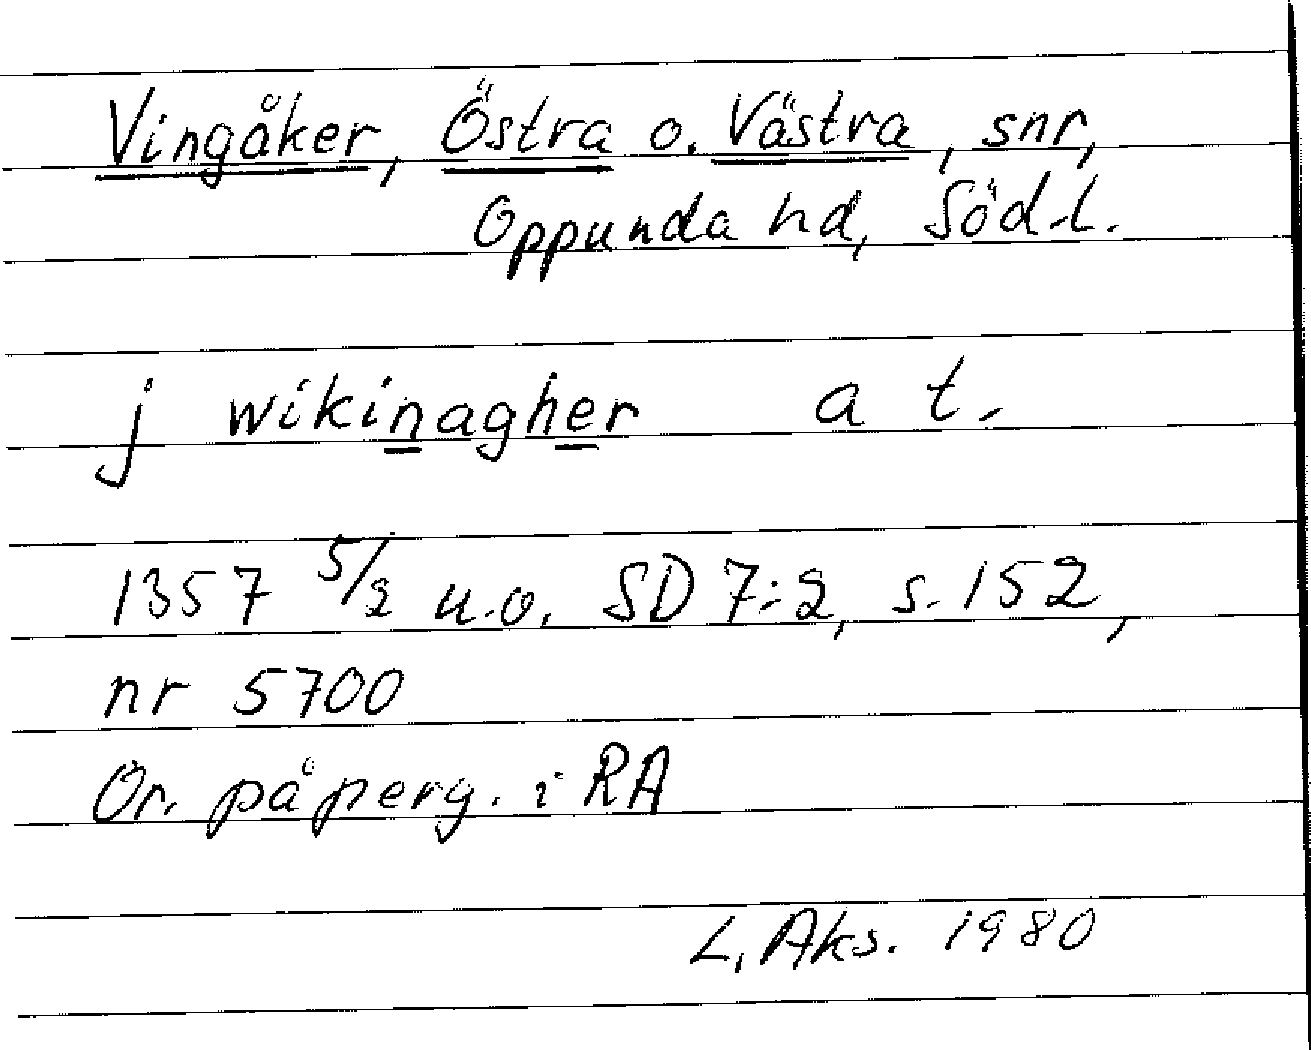 Vingåker, Östra o. Västra, snr,
Oppunda hd, Söd.l.
j wikinagher a t.
1357 5/2 u.o. SD 7:2, s. 152,
nr 5700
Or. på perg. i RA
L. Aks. 1980